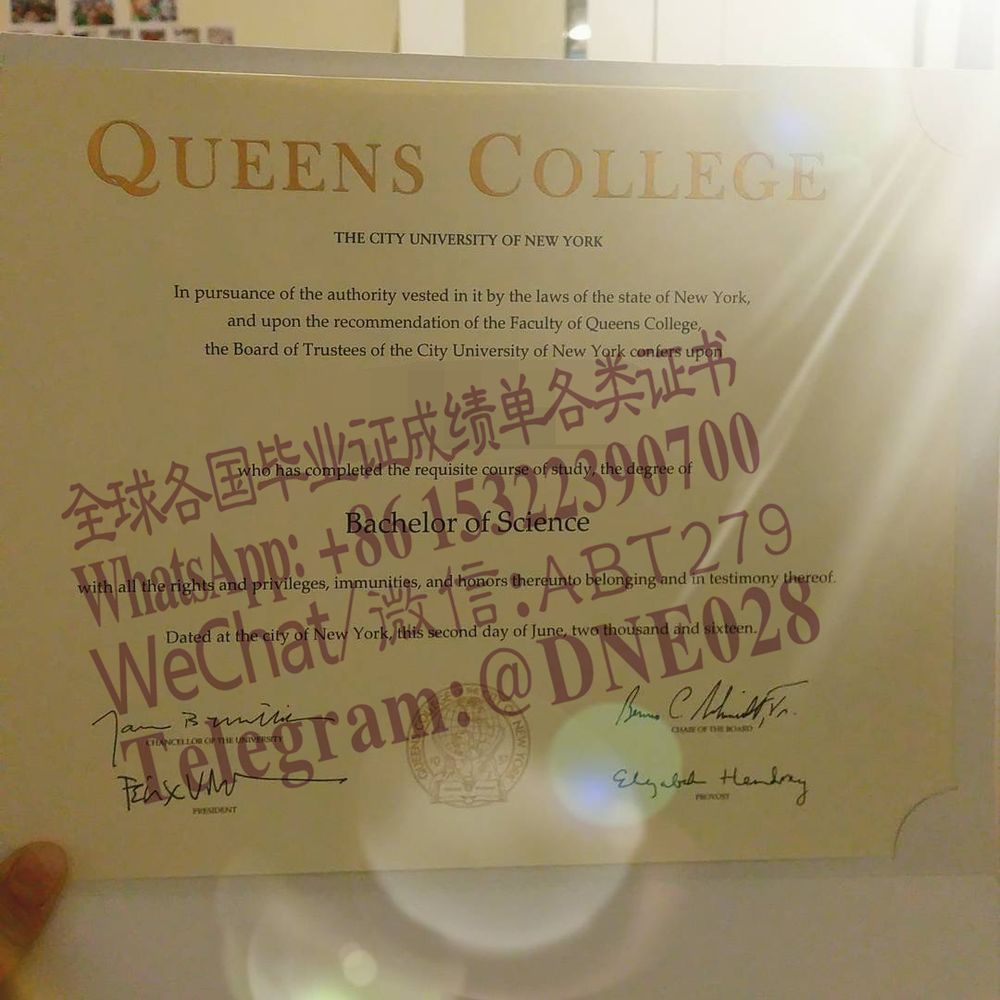 QUEENS COLLEGE
THE CITY UNIVERSITY OF NEW YORK
In pursuance of the authority vested in it by the laws of the state of New York,
and upon the recommendation of the Faculty of Queens College,
the Board of Trustees of the City University of New York confers upon
全球各国毕业证成绩单各类证书
who has completed the requisite course of study, the degree of
WhatsApp: +86 15322390700
Bachelor of Science
WeChat/微信:ABT279
with all the rights and privileges, immunities, and honors thereunto belonging and in testimony thereof.
Dated at the city of New York, this second day of June, two thousand and sixteen.
Telegram:@DNE028
CHANCELLOR OF THE UNIVERSITY
CHAIR OF THE BOARD
PRESIDENT
PROVOST